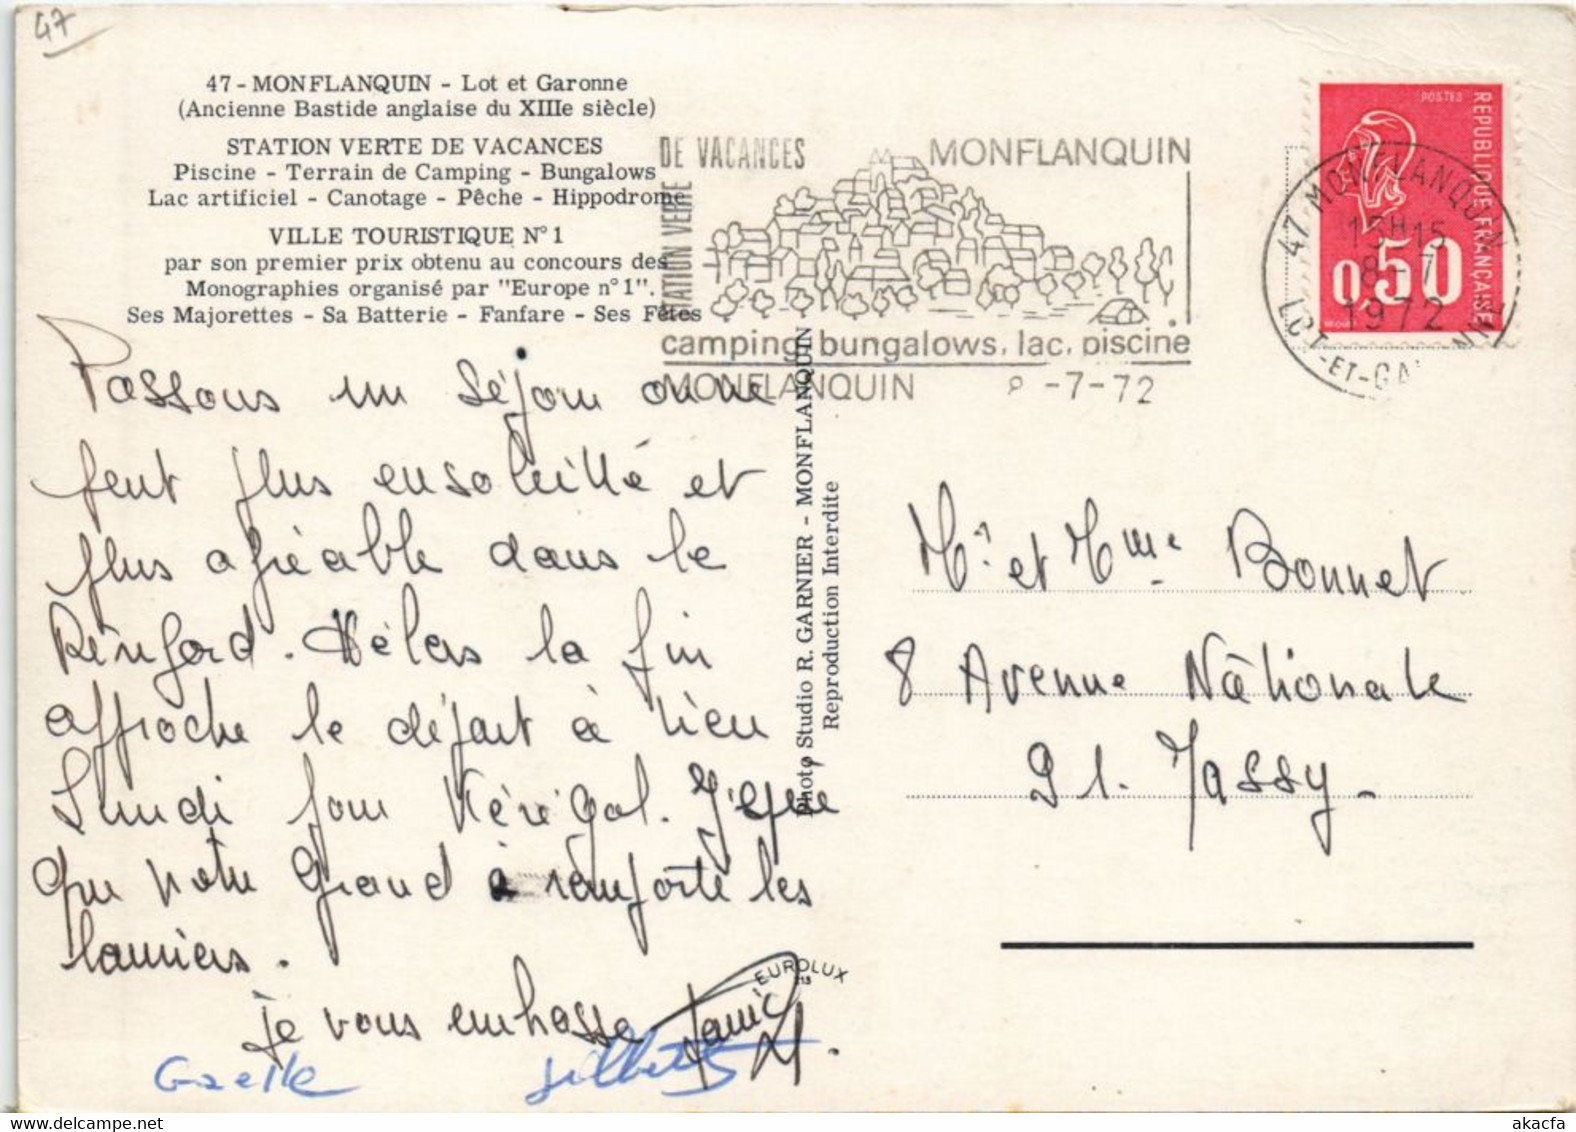 47
47 - MONFLANQUIN - Lot et Garonne
(Ancienne Bastide anglaise du XIIIe siècle)
STATION VERTE DE VACANCES
Piscine - Terrain de Camping - Bungalows
Lac artificiel - Canotage - Pêche - Hippodrome
VILLE TOURISTIQUE N° 1
par son premier prix obtenu au concours des
Monographies organisé par "Europe n° 1".
Ses Majorettes - Sa Batterie - Fanfare - Ses Fêtes
STATION VERTE
DE VACANCES
MONFLANQUIN
camping, bungalows, lac, piscine
MONFLANQUIN 8 -7-72
POSTES
REPUBLIQUE FRANÇAISE
0,50
47 MONFLANQUIN
15H15
8 - 7
1972
LOT-ET-GARONNE
Passons un séjour on ne
peut plus ensoleillé et
plus agréable dans le
Périgord. Hélas la fin
approche le départ à lieu
Lundi pour
que notre Grand à remporté les
lauriers.
je vous embrasse
Gaelle
Photo Studio R. GARNIER - MONFLANQUIN
Reproduction Interdite
EUROLUX
Mr et Mme Bonnet
8 Avenue Nationale
91. Massy.
akacfa
www.delcampe.net